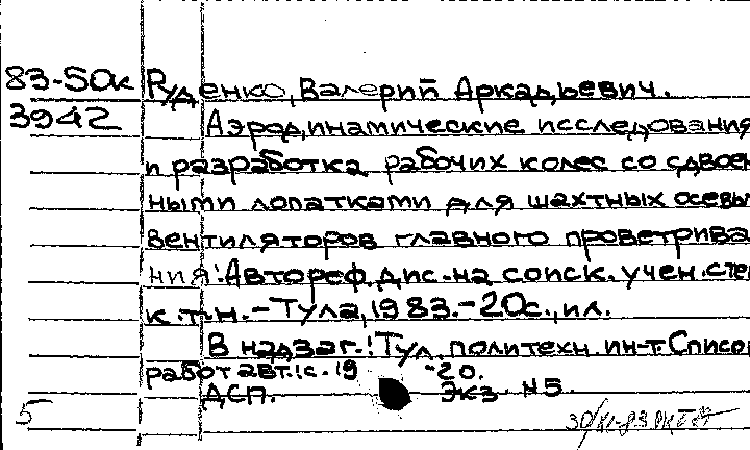 83-50к Руденко, Валерий Аркадьевич.
3942 Аэродинамические исследования
и разработка рабочих колес со сдвоен
ными лопатками для шахтных осевы
вентиляторов главного проветрива
ния: Автореф. дис. на соиск. учен. сте
к.т.н. - Тула, 1983. - 20с., ил.
В надзаг.: Тул. политехн. ин-т. Список
работ авт.: с. 19 -20.
ДСП. Экз. N5.
5